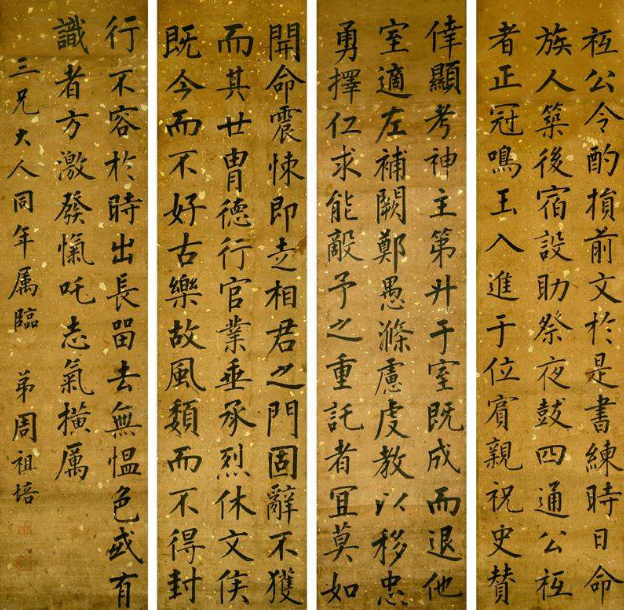 祗公令酌損前文於是書練時日命
族人築後宿設助祭夜鼓四通公祗
者正冠鳴玉入進于位賓親祝史贊
倖顯考神主第升于室既成而退他
室適左補闕鄭愚滌慮虔教以移忠
勇擇仁求能敵予之重託者宜莫如
開命震悚即走相君之門固辭不獲
而其廿胄德行官業垂承烈休文侯
既今而不好古樂故風類而不得封
行不容於時出長留去無愠色或有
識者方激發愾吒志氣橫厲
三兄大人同年属臨 弟周祖培